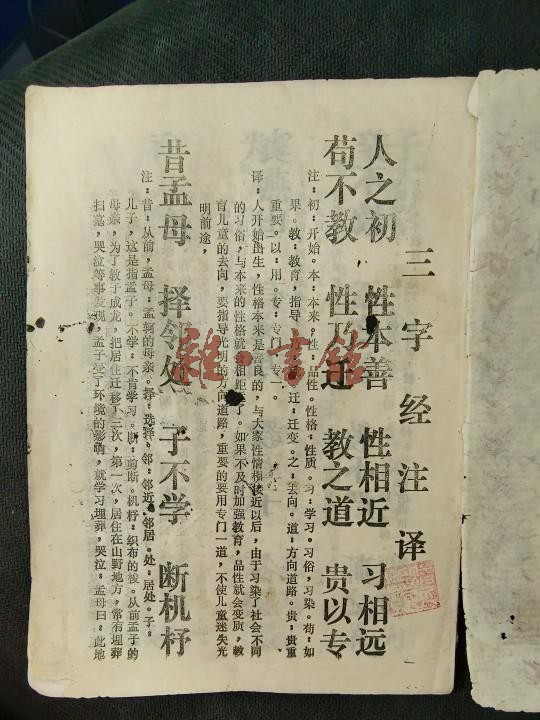 三字经注译
人之初 性本善 性相近 习相远
苟不教 性乃迁 教之道 贵以专
注:初:开始。本:本来。性:品性。性格:性质。习:学习。习俗,习染。苟:如
果。教:教育,指导。迁:迁变。之:去向。道:方向道路。贵:贵重
重要。以:用。专:专门,专一。
译:人开始出生,性格本来是善良的,与大家性情相接近以后,由于习染了社会不同
的习俗,与本来的性格就相距远了。如果不及时加强教育,品性就会变质,教
育儿童的去向,要指导光明的方向道路,重要的要用专门一道,不使儿童迷失光
明前途,
昔孟母 择邻处 子不学 断机杼
注:昔:从前,孟母:孟轲的母亲。择:选择。邻:邻近,邻居。处:居处。子:
儿子,这是指孟子。不学:不肯学习。断:剪断。机杼:织布的梭。从前孟子的
母亲,为了教子成龙,把居住迁移了三次,第一次,居住在山野地方,常有埋葬
扫墓,哭泣等事发现,孟子受了环境的影响,就学习埋葬,哭泣;孟母曰:此地